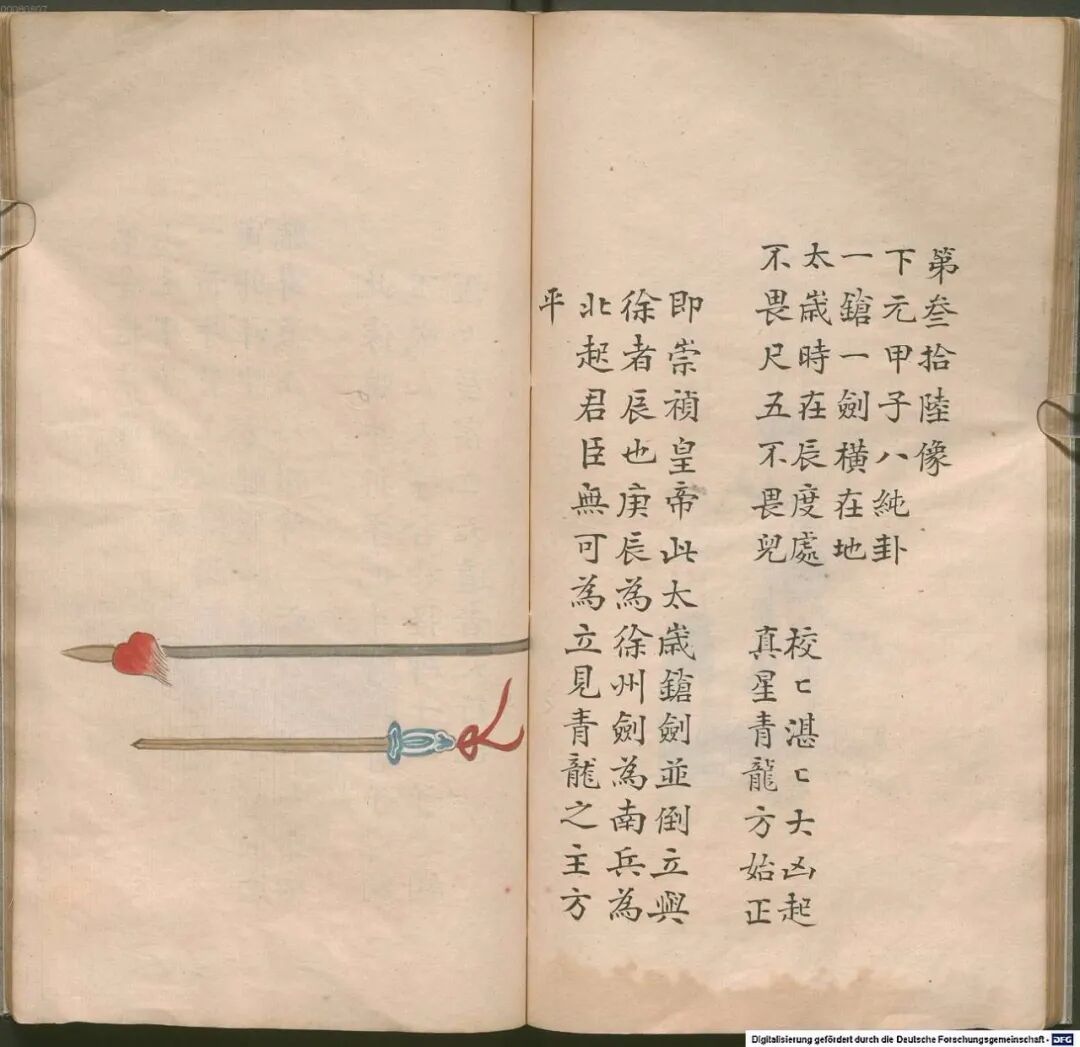 第叁拾陸像
下元甲子八純卦
一鎗一劍橫在地
太歲時在辰度處 校匕湛匕大凶起
不畏尺五不畏兒 真星青龍方始正
即崇禎皇帝此太歲鎗劍並倒立興
徐者辰也庚辰為徐州劍為南兵為
北起君臣無可為立見青龍之主方
平
Digitalisierung gefördert durch die Deutsche Forschungsgemeinschaft - DFG